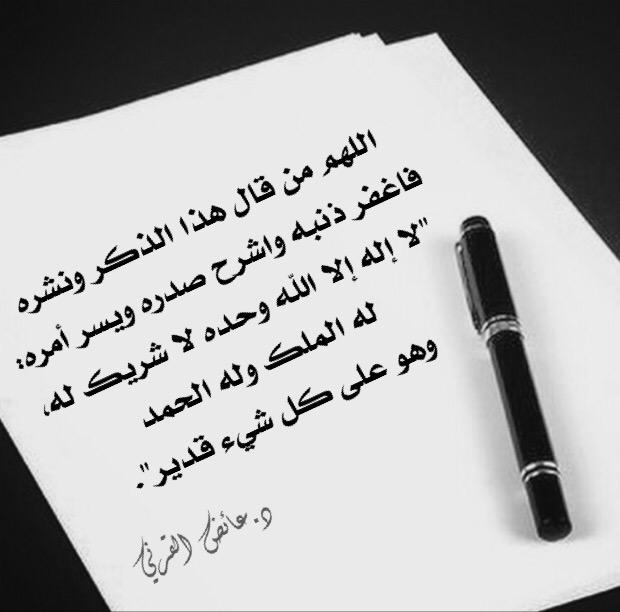 اللهم من قال هذا الذكر ونشره
فاغفر ذنبه واشرح صدره ويسر أمره:
"لا إله إلا الله وحده لا شريك له،
له الملك وله الحمد
وهو على كل شيء قدير".
د. عائض القرني